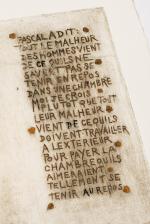 PASCAL A DIT:
TOUT LE MALHEUR
DES HOMMES VIENT
DE CE QU'ILS NE
SAVENT PAS SE
TENIR EN REPOS
DANS UNE CHAMBRE
MOI JE CROIS
PLUTOT QUE TOUT
LEUR MALHEUR
VIENT DE CE QU'ILS
DOIVENT TRAVAILLER
A L'EXTERIEUR
POUR PAYER LA
CHAMBRE OU ILS
AIMERAIENT
TELLEMENT SE
TENIR AU REPOS